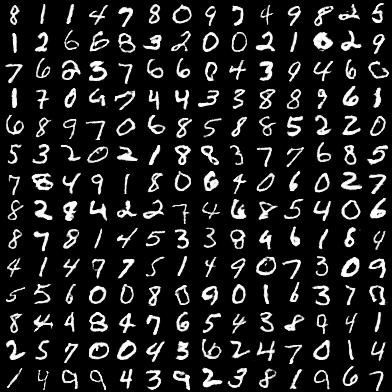 8 1 1 4 7 8 0 9 3 4 9 8 2 5
1 2 6 6 8 3 2 0 0 2 1 0 2 9
7 6 2 3 7 6 6 0 4 3 9 4 6 0
1 7 0 4 7 4 4 3 3 8 8 9 6 1
6 8 9 7 0 6 8 5 8 8 5 2 2 0
5 3 2 0 2 1 8 8 3 7 7 6 8 5
7 8 4 9 1 8 0 6 4 0 6 0 2 7
8 2 8 4 2 2 7 4 6 8 5 4 0 6
8 7 8 1 4 5 3 3 8 9 6 1 6 4
4 1 4 9 7 5 1 4 9 0 7 3 0 9
5 5 6 0 0 8 0 9 0 1 6 3 7 0
8 4 4 8 4 7 6 5 4 3 8 9 4 1
2 5 7 0 0 4 3 6 2 4 7 0 1 4
1 4 9 9 4 3 9 2 3 8 1 9 6 7